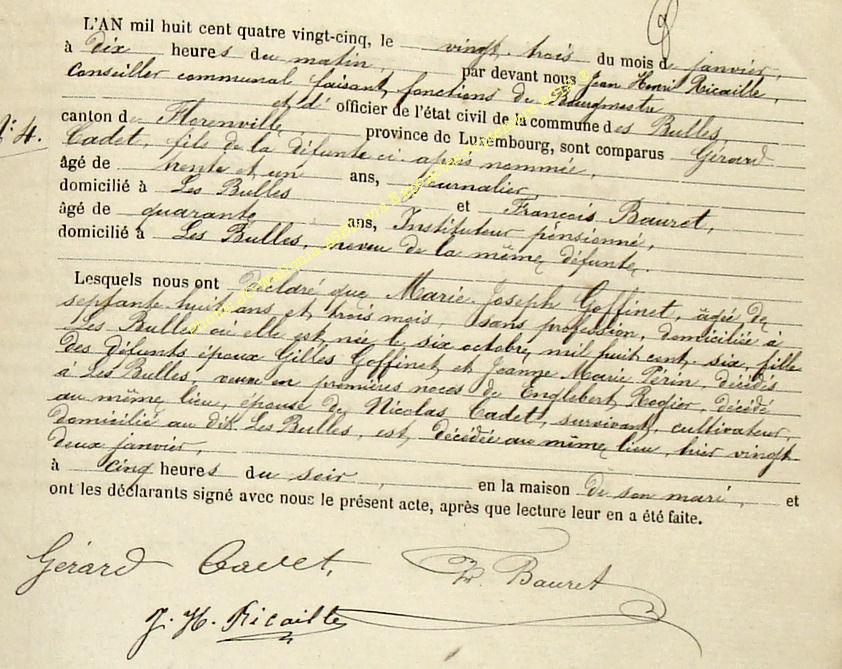 L'AN mil huit cent quatre vingt-cinq, le vingt trois du mois de janvier,
à dix heures du matin, par devant nous Jean Henri Ricaille,
Conseiller communal faisant fonctions de Bourgmestre
et d' officier de l'état civil de la commune des Bulles
N: 4.
canton de Florenville province de Luxembourg, sont comparus Gérard
Cadet, fils de la défunte ci-après nommée,
âgé de trente et un ans, journalier,
domicilié à Les Bulles et François Bauret,
âgé de quarante ans, Instituteur pensionné,
domicilié à Les Bulles, neveu de la même défunte.
Lesquels nous ont déclaré que Marie-Joseph Goffinet, âgée de
septante huit ans et trois mois, sans profession, domiciliée à
Les Bulles où elle est née le six octobre mil huit cent six, fille
des défunts époux Gilles Goffinet et Jeanne Marie Périn, décédés
à Les Bulles, veuve en premières noces de Englebert Rogier, décédé
au même lieu, épouse de Nicolas Cadet, survivant, cultivateur,
domicilié au dit Les Bulles, est décédée au même lieu, hier vingt-
deux janvier,
à cinq heures du soir, en la maison de son mari, et
ont les déclarants signé avec nous le présent acte, après que lecture leur en a été faite.
Gérard Cadet, Fr. Bauret
J. H. Ricaille